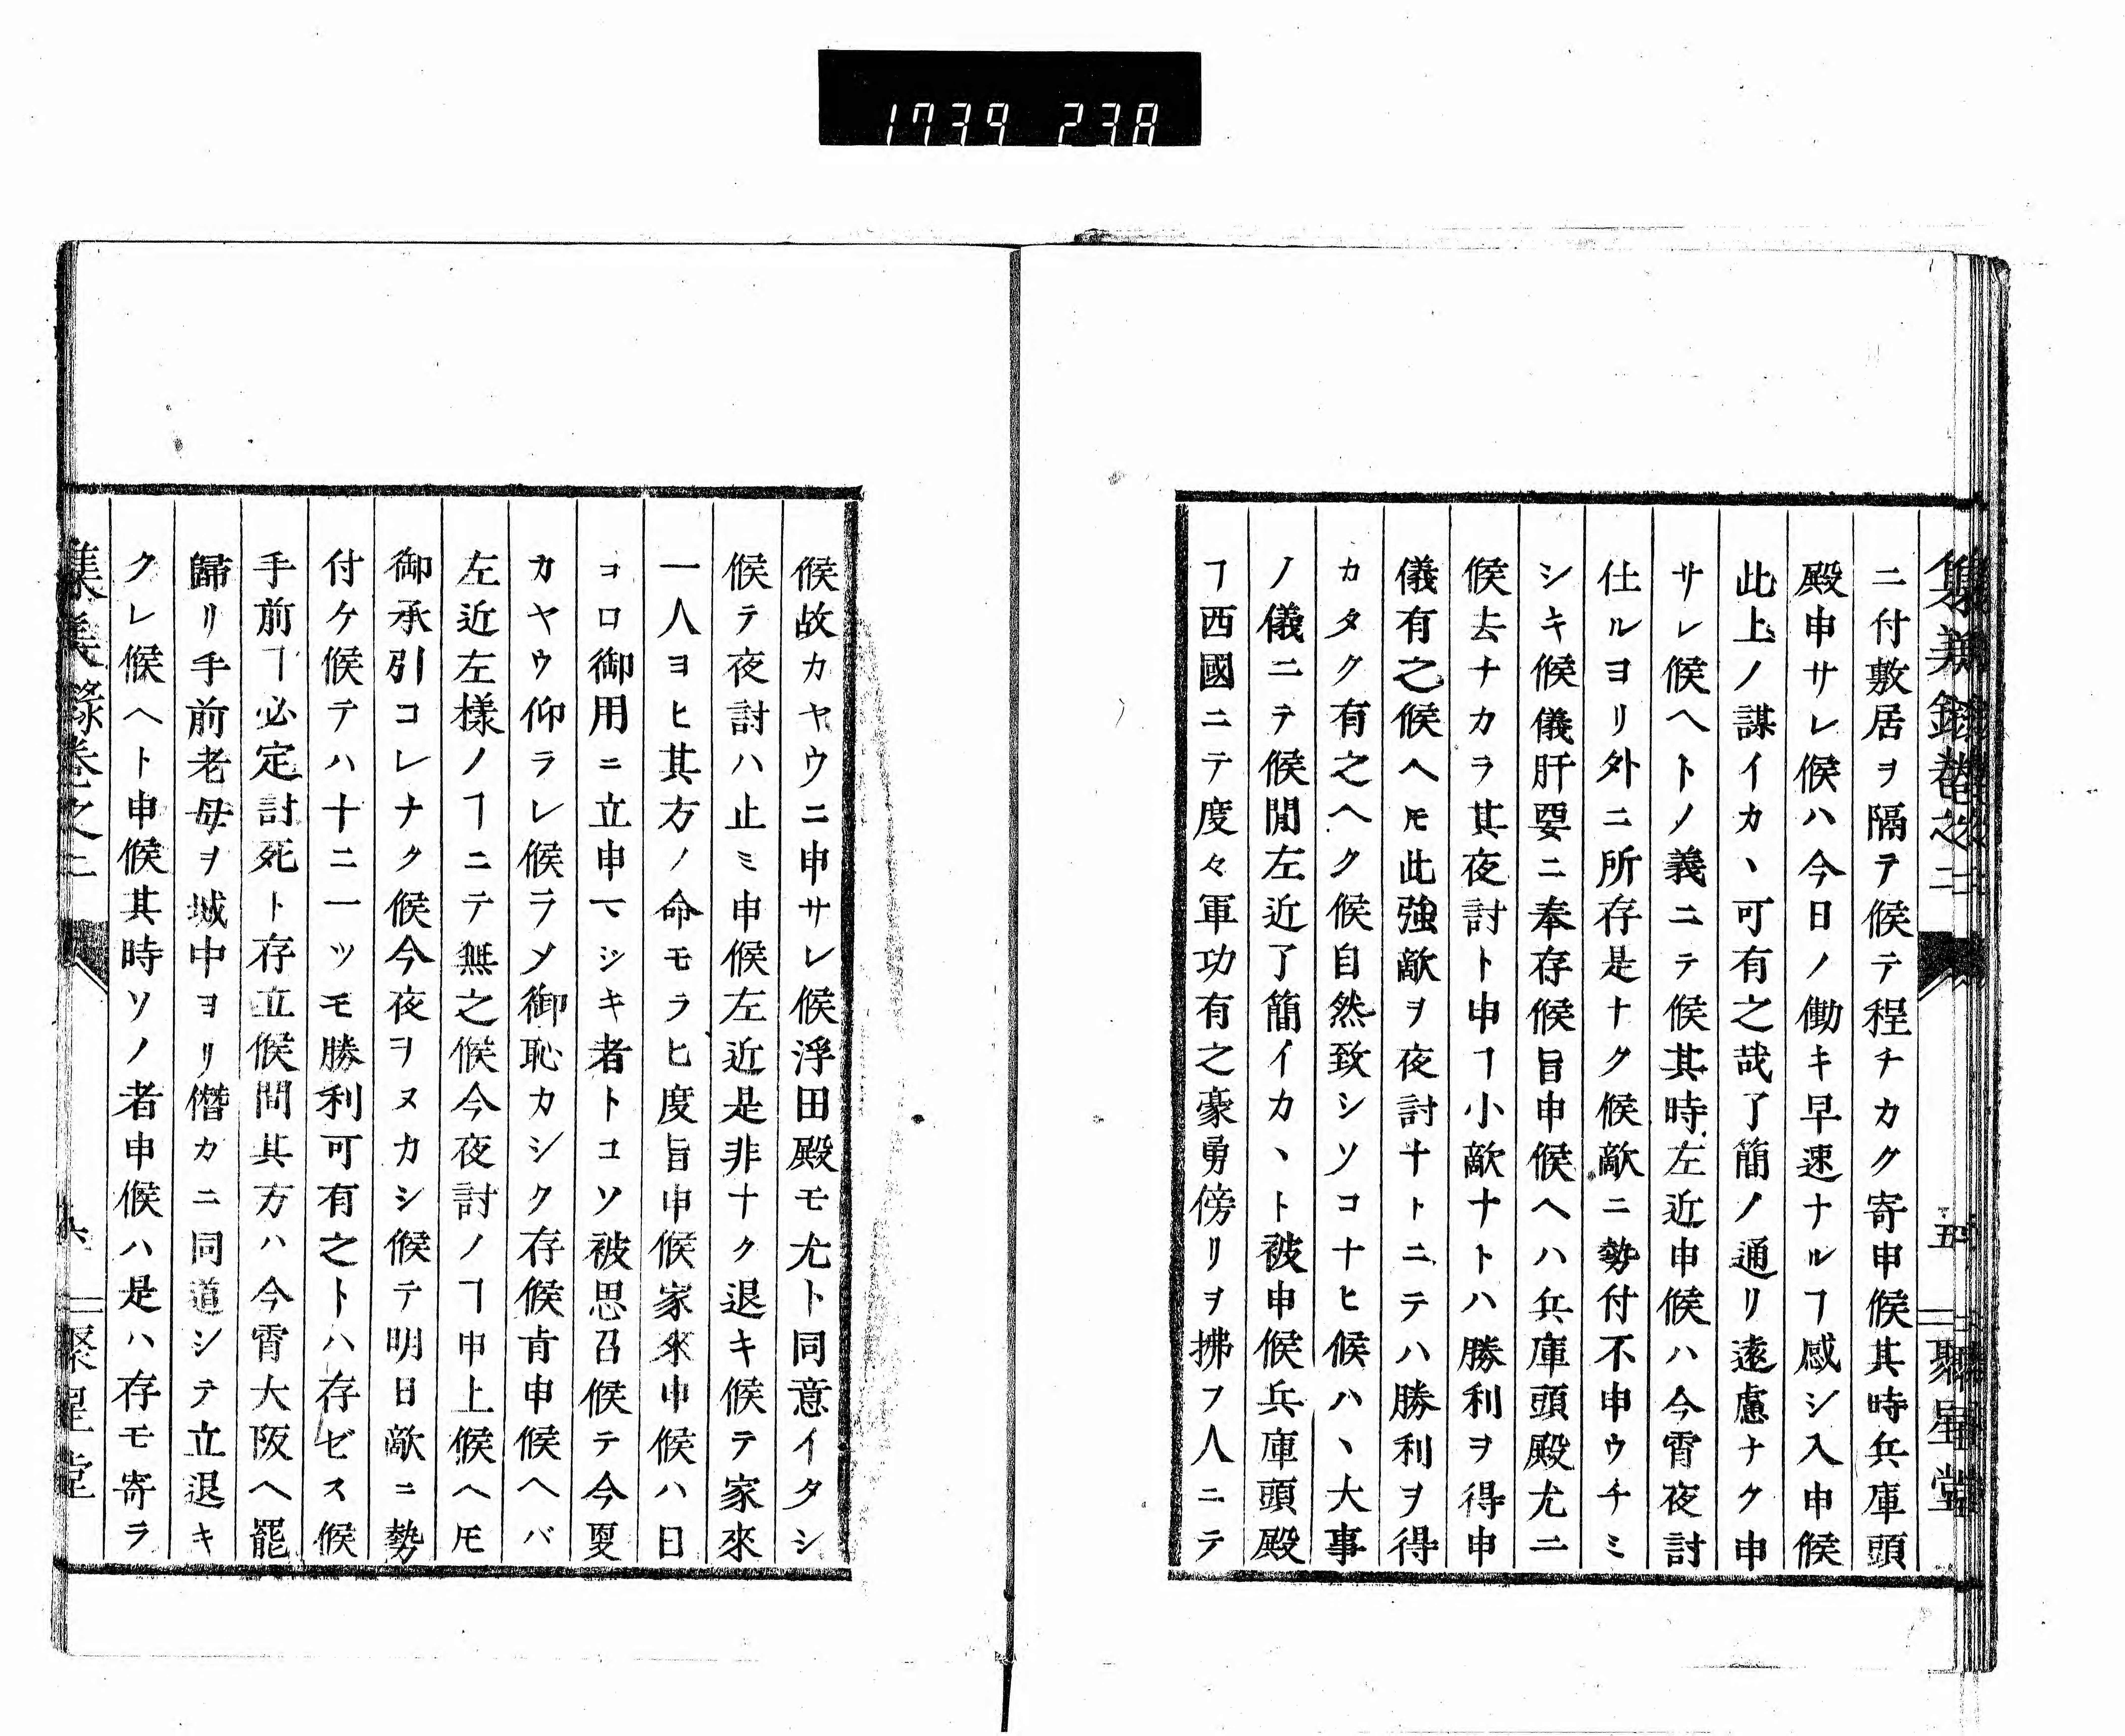 1739 238
集義錄卷之二 五 聚星堂
ニ付敷居ヲ隔テ候テ程チカク寄申候其時兵庫頭
殿申サレ候ハ今日ノ働キ早速ナルヿ感シ入申候
此上ノ謀イカヽ可有之哉了簡ノ通リ遠慮ナク申
サレ候ヘトノ義ニテ候其時左近申候ハ今宵夜討
仕ルヨリ外ニ所存是ナク候敵ニ勢付不申ウチミ
シキ候儀肝要ニ奉存候旨申候ヘハ兵庫頭殿尤ニ
候去ナカラ其夜討ト申ヿ小敵ナトハ勝利ヲ得申
儀有之候ヘ𪜈此強敵ヲ夜討ナトニテハ勝利ヲ得
カタク有之ヘク候自然致シソコナヒ候ハヽ大事
ノ儀ニテ候間左近了簡イカヽト被申候兵庫頭殿
ヿ西國ニテ度々軍功有之豪勇傍リヲ拂フ人ニテ
候故カヤウニ申サレ候浮田殿モ尤ト同意イタシ
候テ夜討ハ止ミ申候左近是非ナク退キ候テ家來
一人ヨヒ其方ノ命モラヒ度旨申候家來申候ハ日
コロ御用ニ立申ヘシキ者トコソ被思召候テ今更
カヤウ仰ラレ候ヲメ御恥カシク存候肯申候ヘバ
左近左様ノヿニテ無之候今夜討ノヿ申上候ヘ𪜈
御承引コレナク候今夜ヲヌカシ候テ明日敵ニ勢
付ケ候テハ十ニ一ツモ勝利可有之トハ存ゼス候
手前ヿ必定討死ト存立候間其方ハ今宵大阪ヘ罷
歸リ手前老母ヲ城中ヨリ僭カニ同道シテ立退キ
クレ候ヘト申候其時ソノ者申候ハ是ハ存モ寄ラ
集義錄卷之二 六 聚星堂